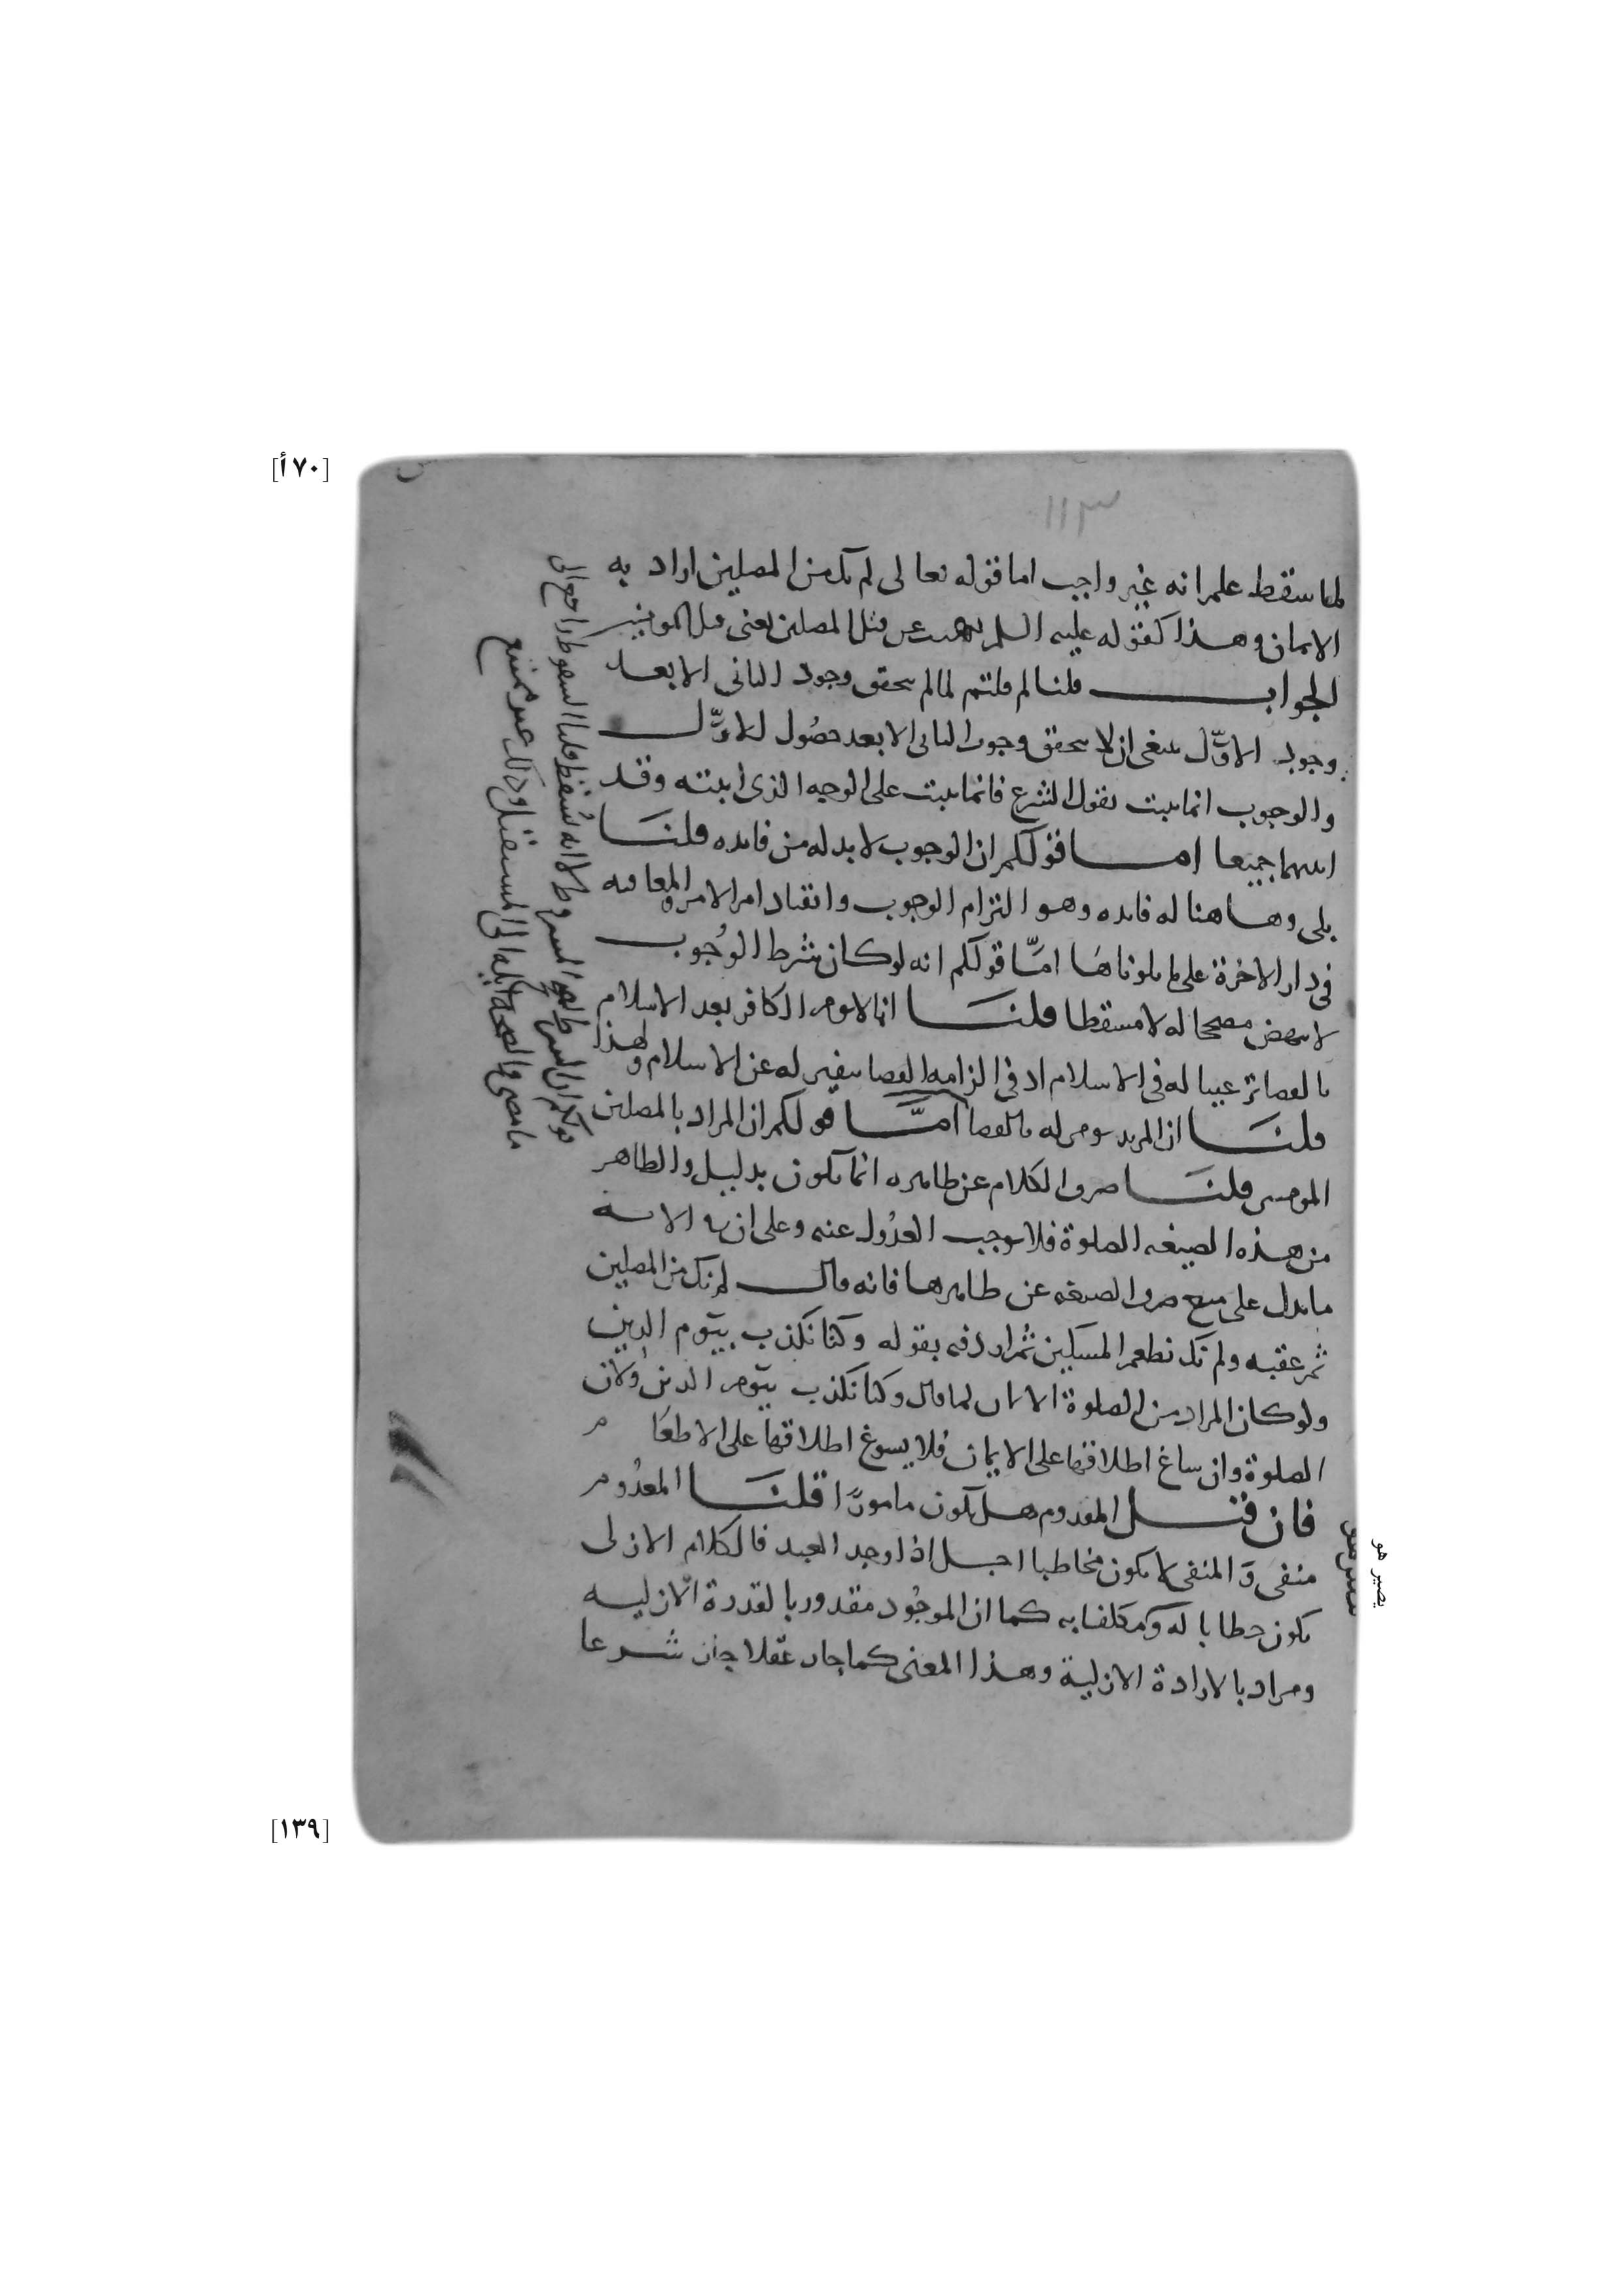 [٧٠أ]
١١٣
لما سقط علم انه غير واجب اما قوله تعالى لم نك من المصلين اراد به
الايمان وهذا كقوله عليه السلم نهيت عن قتل المصلين يعنى قتل المومنين
الجواب قلنا لم قلتم لما لم يتحقق وجود الثانى الا بعد
وجود الاوّل ينبغى ان لا يتحقق وجوب الثانى الا بعد حصُول الاوّل
والوجوب انما يثبت بقول الشرع فانما يثبت على الوجه الذى اثبته وقد
اثبتهما جميعا اما قولكم ان الوجوب لا بد له من فايده قلنا
بلى وهاهنا له فايده وهو التزام الوجوب وانقياد امر الامر والمعاقبه
فى دار الاخرة على ما تلوناها امّا قولكم انه لو كان شرط الوُجوب
لانتهض مصححا له لا مسقطا قلنا انما لا يومر الكافر بعد الاسلام
بالقضا ترغيبا له فى الاسلام اذ فى الزامه القضا تنفير له عن الاسلام ولهذا
قلنا ان المرتد يومر له بالقضا امّا قولكم ان المراد بالمصلين
المومنين قلنا صرف الكلام عن ظاهره انما يكون بدليل والظاهر
من هذه الصيغه الصلوة فلا يوجب العدُول عنه وعلى ان فى الايه
ما يدل على منع صرف الصيغه عن ظاهرها فانه قال لم نك من المصلين
ثم عقبه ولم نك نطعم المسكين ثم اردفه بقوله وكنا نكذب بيَوم الدين
ولو كان المراد من الصلوة الايمان لما قال وكنا نكذب بيَوم الدين ولان
الصلوة وان ساغ اطلاقها على الايمان فلا يسوغ اطلاقها على الاطعَام
فان قيل المعدوم هل يكون مامورًا قلنا المعدُوم
منفى وَالمنفى لا يكون مخاطبا اجل اذا وجد العبد فالكلام الازلى
يكون خطابا له ومكلفا به كما ان الموجُود مقدور بالقدرة الازليه
ومراد بالارادة الازلية وهذا المعنى كما جاز عقلا جاز شرعا
قولكم ان الشرط المشروط لانه سُقط قلنا السقوط راجع الى
ما مضى والصحة ايله الى المستقبل وذلك غير ممتنع
يصير هو
[١٣٩]